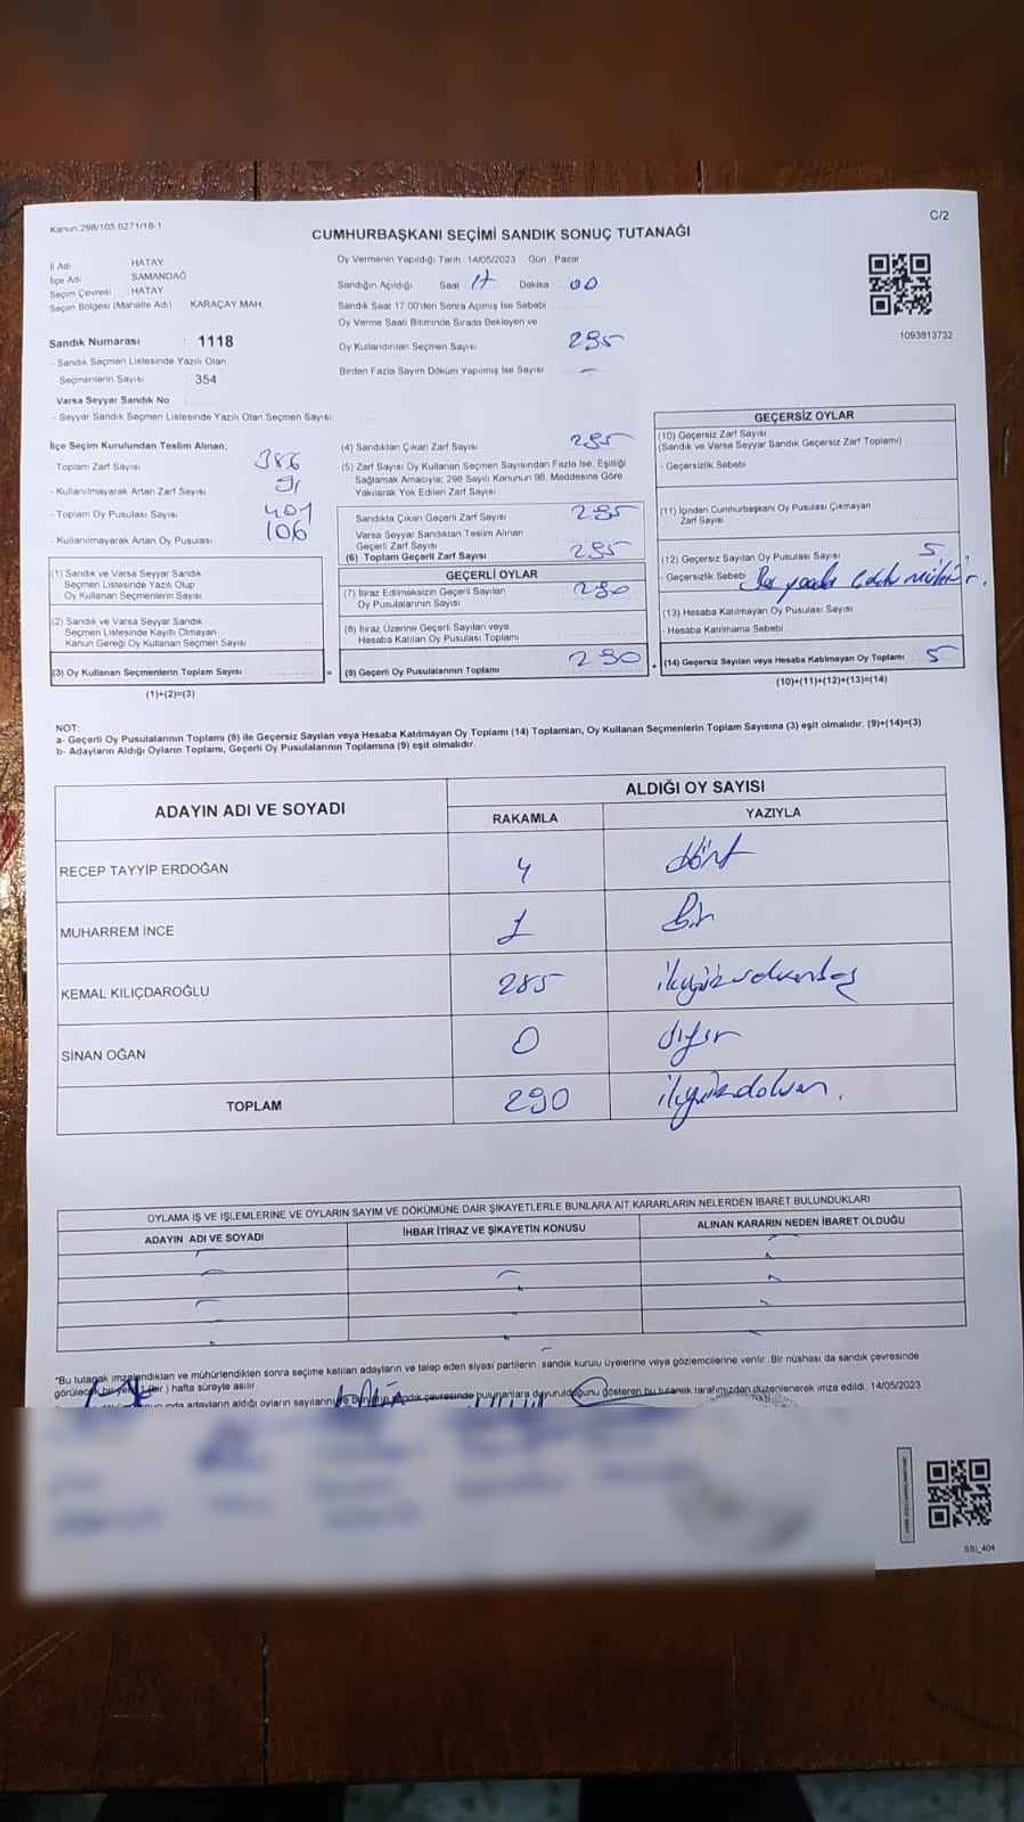 Kanun 298/105.6271/18-1
C/2
CUMHURBAŞKANI SEÇİMİ SANDIK SONUÇ TUTANAĞI
İl Adı : HATAY
İlçe Adı : SAMANDAĞ
Seçim Çevresi : HATAY
Seçim Bölgesi (Mahalle Adı) : KARAÇAY MAH.
Sandık Numarası : 1118
- Sandık Seçmen Listesinde Yazılı Olan
Seçmenlerin Sayısı 354
Varsa Seyyar Sandık No
- Seyyar Sandık Seçmen Listesinde Yazılı Olan Seçmen Sayısı:
Oy Vermenin Yapıldığı Tarih : 14/05/2023 Gün : Pazar
Sandığın Açıldığı Saat 17 Dakika 00
Sandık Saat 17:00'den Sonra Açılmış İse Sebebi
Oy Verme Saati Bitiminde Sırada Bekleyen ve
Oy Kullandırılan Seçmen Sayısı 295
Birden Fazla Sayım Döküm Yapılmış İse Sayısı –
1093813732
İlçe Seçim Kurulundan Teslim Alınan;
- Toplam Zarf Sayısı 386
- Kullanılmayarak Artan Zarf Sayısı 91
- Toplam Oy Pusulası Sayısı 401
- Kullanılmayarak Artan Oy Pusulası 106
(1) Sandık ve Varsa Seyyar Sandık
Seçmen Listesinde Yazılı Olup
Oy Kullanan Seçmenlerin Sayısı
(2) Sandık ve Varsa Seyyar Sandık
Seçmen Listesinde Kayıtlı Olmayan
Kanun Gereği Oy Kullanan Seçmen Sayısı
(3) Oy Kullanan Seçmenlerin Toplam Sayısı
(1)+(2)=(3)
(4) Sandıktan Çıkan Zarf Sayısı 295
(5) Zarf Sayısı Oy Kullanan Seçmen Sayısından Fazla İse, Eşitliği
Sağlamak Amacıyla; 298 Sayılı Kanunun 98. Maddesine Göre
Yakılarak Yok Edilen Zarf Sayısı
Sandıkta Çıkan Geçerli Zarf Sayısı 295
Varsa Seyyar Sandıktan Teslim Alınan
Geçerli Zarf Sayısı
(6) Toplam Geçerli Zarf Sayısı 295
GEÇERLİ OYLAR
(7) İtiraz Edilmeksizin Geçerli Sayılan
Oy Pusulalarının Sayısı 290
(8) İtiraz Üzerine Geçerli Sayılan veya
Hesaba Katılan Oy Pusulası Toplamı
= (9) Geçerli Oy Pusulalarının Toplamı 290
GEÇERSİZ OYLAR
(10) Geçersiz Zarf Sayısı
(Sandık ve Varsa Seyyar Sandık Geçersiz Zarf Toplamı)
- Geçersizlik Sebebi
(11) İçinden Cumhurbaşkanı Oy Pusulası Çıkmayan
Zarf Sayısı
(12) Geçersiz Sayılan Oy Pusulası Sayısı 5
- Geçersizlik Sebebi
(13) Hesaba Katılmayan Oy Pusulası Sayısı
- Hesaba Katılmama Sebebi
+ (14) Geçersiz Sayılan veya Hesaba Katılmayan Oy Toplamı 5
(10)+(11)+(12)+(13)=(14)
NOT:
a- Geçerli Oy Pusulalarının Toplamı (9) ile Geçersiz Sayılan veya Hesaba Katılmayan Oy Toplamı (14) Toplamları, Oy Kullanan Seçmenlerin Toplam Sayısına (3) eşit olmalıdır. (9)+(14)=(3)
b- Adayların Aldığı Oyların Toplamı, Geçerli Oy Pusulalarının Toplamına (9) eşit olmalıdır.
ADAYIN ADI VE SOYADI
ALDIĞI OY SAYISI
RAKAMLA YAZIYLA
RECEP TAYYİP ERDOĞAN 4 dört
MUHARREM İNCE 1 Bir
KEMAL KILIÇDAROĞLU 285 ikiyüzseksenbeş
SİNAN OĞAN 0 sıfır
TOPLAM 290 ikiyüzdoksan.
OYLAMA İŞ VE İŞLEMLERİNE VE OYLARIN SAYIM VE DÖKÜMÜNE DAİR ŞİKAYETLERLE BUNLARA AİT KARARLARIN NELERDEN İBARET BULUNDUKLARI
ADAYIN ADI VE SOYADI İHBAR İTİRAZ VE ŞİKAYETİN KONUSU ALINAN KARARIN NEDEN İBARET OLDUĞU
"Bu tutanak imzalandıktan ve mühürlendikten sonra seçime katılan adayların ve talep eden siyasi partilerin sandık kurulu üyelerine veya gözlemcilerine verilir. Bir nüshası da sandık çevresinde
görülecek bir yere ( bir ) hafta süreyle asılır.
adayların aldığı oyların sayılarını ve sandık çevresinde bulunanlara duyurulduğunu gösteren bu tutanak tarafımızdan düzenlenerek imza edildi. 14/05/2023
SBİ_404